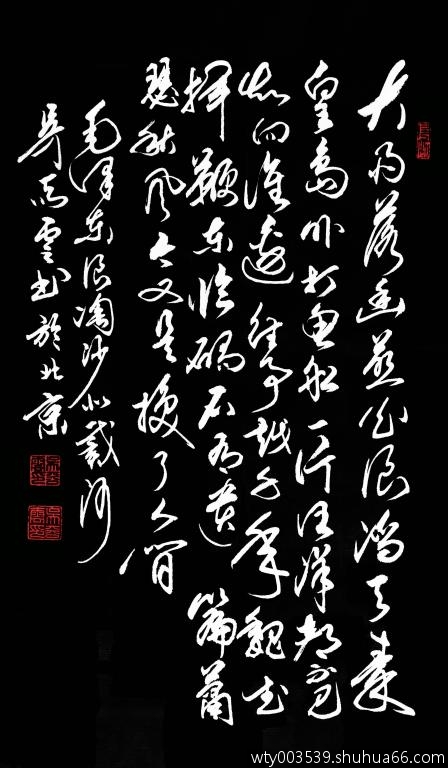 大雨落幽燕白浪滔天秦
皇岛外打鱼船一片汪洋都不见
知向谁边往事越千年魏武
挥鞭东临碣石有遗篇萧
瑟秋风今又是换了人间
毛泽东浪淘沙北戴河
云书於北京
wty003539.shuhua66.com